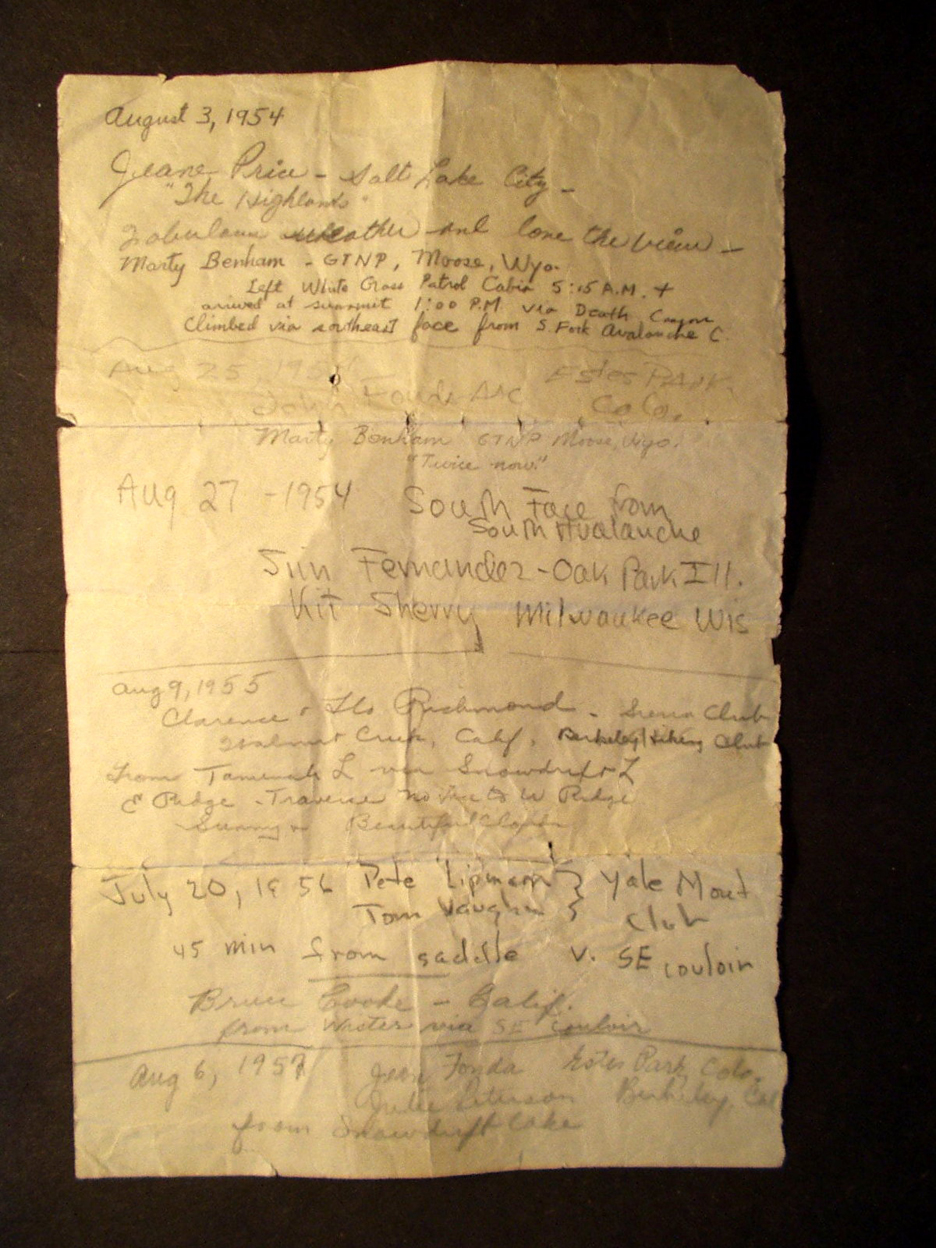 August 3, 1954
Jeane Price - Salt Lake City -
"The Highlands"
Fabulous weather and love the view -
Marty Benham - GTNP, Moose, Wyo.
Left White Grass Patrol Cabin 5:15 A.M. +
arrived at summit 1:00 P.M. via Death Canyon
Climbed via southeast face from S. Fork Avalanche C.
Aug 25, 1954 Estes Park
John Fonda Colo.
Marty Benham GTNP Moose, Wyo.
"Twice now"
Aug 27 - 1954 South Face from
South Avalanche
Fernandez - Oak Park Ill.
Kit Sherry Milwaukee Wis
Aug 9, 1955
Clarence + Flo Richmond - Sierra Club
Walnut Creek, Calif. Berkeley Hiking Club
From Taminah L via Snowdrift L
E Ridge - Traverse to W Ridge
Sunny + Beautiful
July 20, 1956 Pete Lipman } Yale Mount
Tom Vaughn } Club
45 min from saddle v. SE couloir
Bruce Cooke - Calif.
from via SE couloir
Aug 6, 1957 Jean Fonda Estes Park, Colo.
Julie Peterson Berkeley, Cal
from Snowdrift Lake